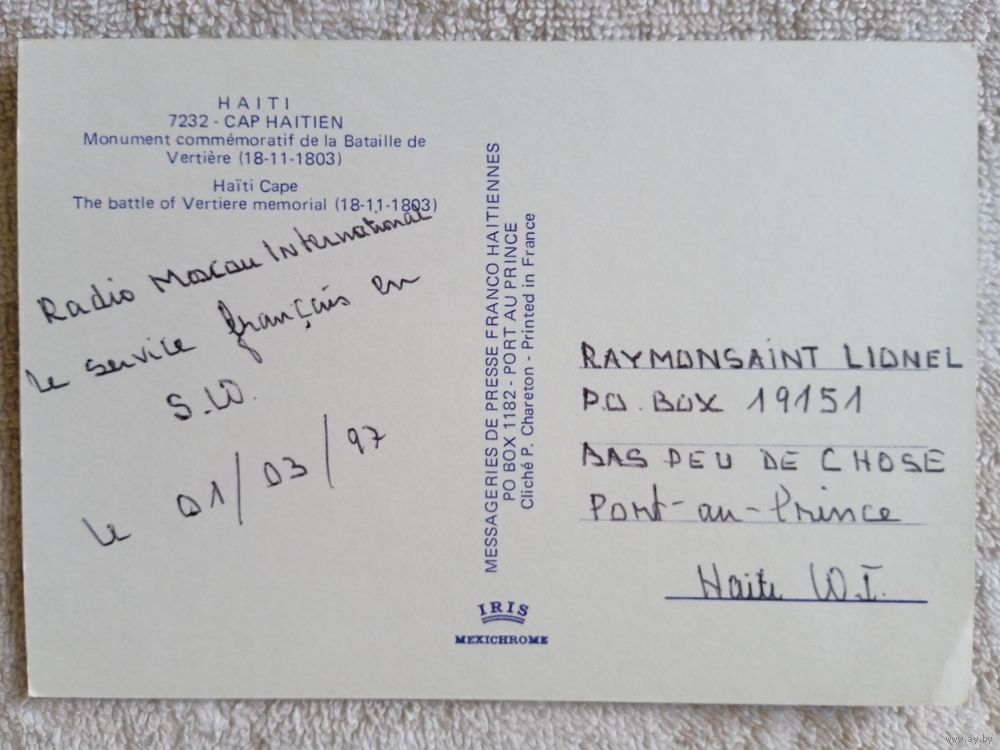 HAITI
7232 - CAP HAITIEN
Monument commémoratif de la Bataille de
Vertière (18-11-1803)
Haïti Cape
The battle of Vertiere memorial (18-11-1803)
Radio Moscou International
le service français en
S.W.
le 01/03/97
MESSAGERIES DE PRESSE FRANCO HAITIENNES
PO BOX 1182 - PORT AU PRINCE
Cliché P. Chareton - Printed in France
IRIS
MEXICHROME
RAYMONSAINT LIONEL
P.O. BOX 19151
BAS PEU DE CHOSE
Port-au-Prince
Haiti W.I.
www.ay.by